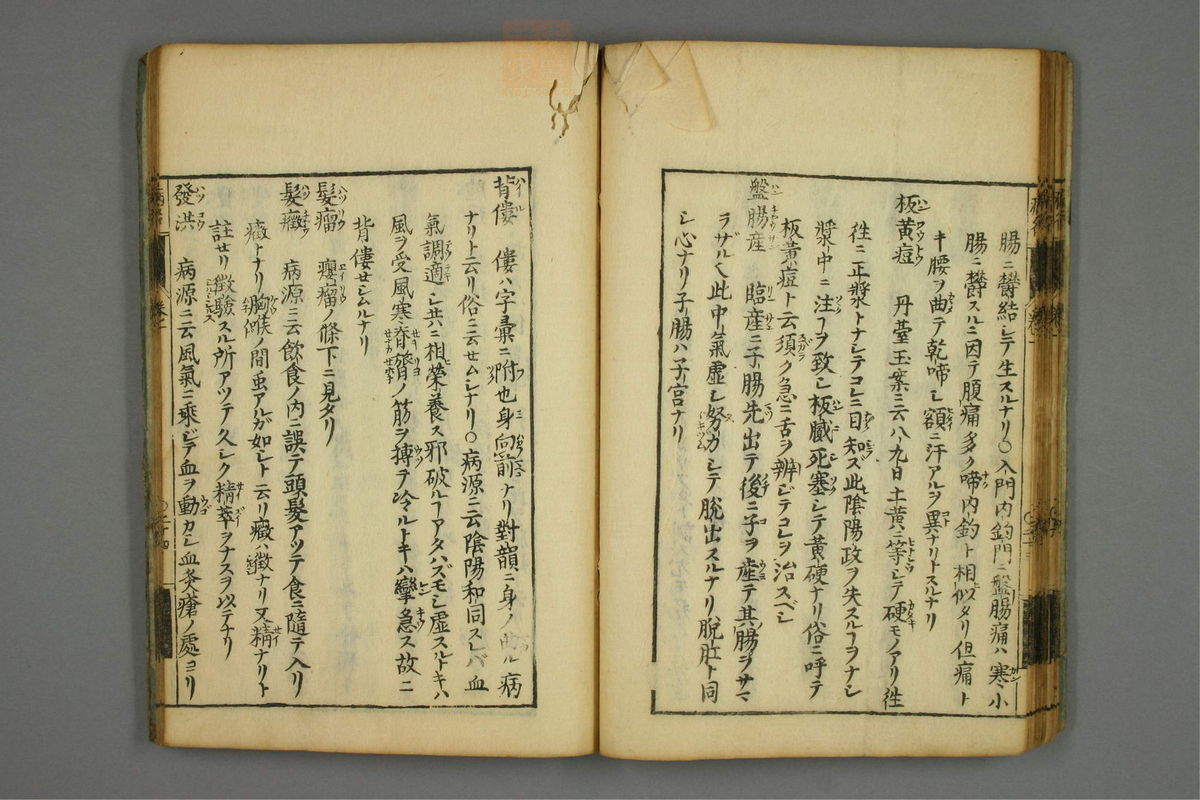 腸ニ欝結シテ生スルナリ○入門内釣門ニ盤腸痛ハ寒小
腸ニ欝スルニ因テ腹痛多ク啼内釣ト相似タリ但痛ト
キ腰ヲ曲テ乾啼シ額ニ汗アルヲ異ナリトスルナリ
板黄痘 丹臺玉案ニ云八九日土黄ニ等シテ硬モノアリ徃
徃ニ正漿トナシテコレニ目知ズ此陰陽政ヲ失スルヿヲナシ
漿中ニ注ヿヲ致シ板膩死塞シテ黄硬ナリ俗ニ呼テ
板黄痘ト云須ク急ニ舌ヲ辨ジテコレヲ治スベシ
盤腸産 臨産ニ子腸先出テ後ニ子ヲ産テ其腸ヲサマ
ラザル此中氣虚シ努力シテ脱出スルナリ脱肛ト同
シ心ナリ子腸ハ子宮ナリ
背僂 僂ハ字彙ニ附也身向前ナリ對韻ニ身ノ曲ル病
ナリト云リ俗ニ云せムシナリ○病源ニ云陰陽和同スレバ血
氣調適シ共ニ相榮養ス邪破ルヿアタハズモシ虚スルトキハ
風ヲ受風寒脊膂ノ筋ヲ搏テ冷ルトキハ攣急ス故ニ
背僂せシムルナリ
髮瘤 癭瘤ノ條下ニ見タリ
髮癥 病源ニ云飲食ノ内ニ誤テ頭髮アツテ食ニ隨テ入リ
癥トナリ胸喉ノ間虫アルガ如シト云リ癥ハ徴ナリ又精ナリト
註せリ徴驗スル所アツテ久シク精萃ヲナスヲ以テナリ
發洪 病源ニ云風氣ニ乘ジテ血ヲ動カシ血灸瘡ノ處ヨリ